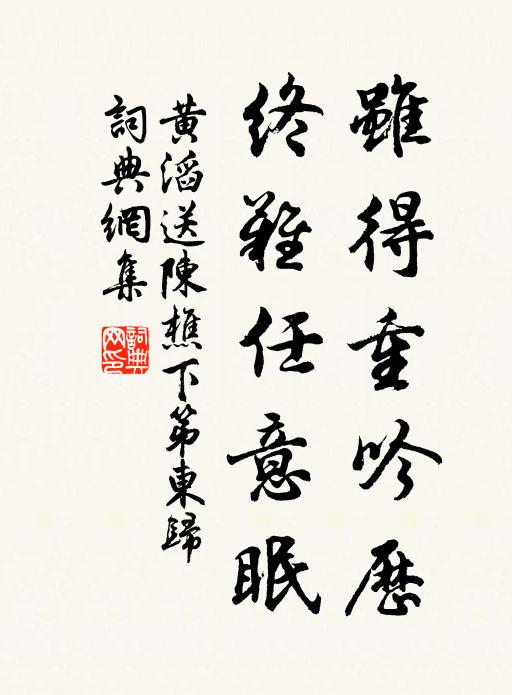 雖得重吟歷
終難任意眠
黃滔送陳樵下第東歸
詞典網集
詞典网印